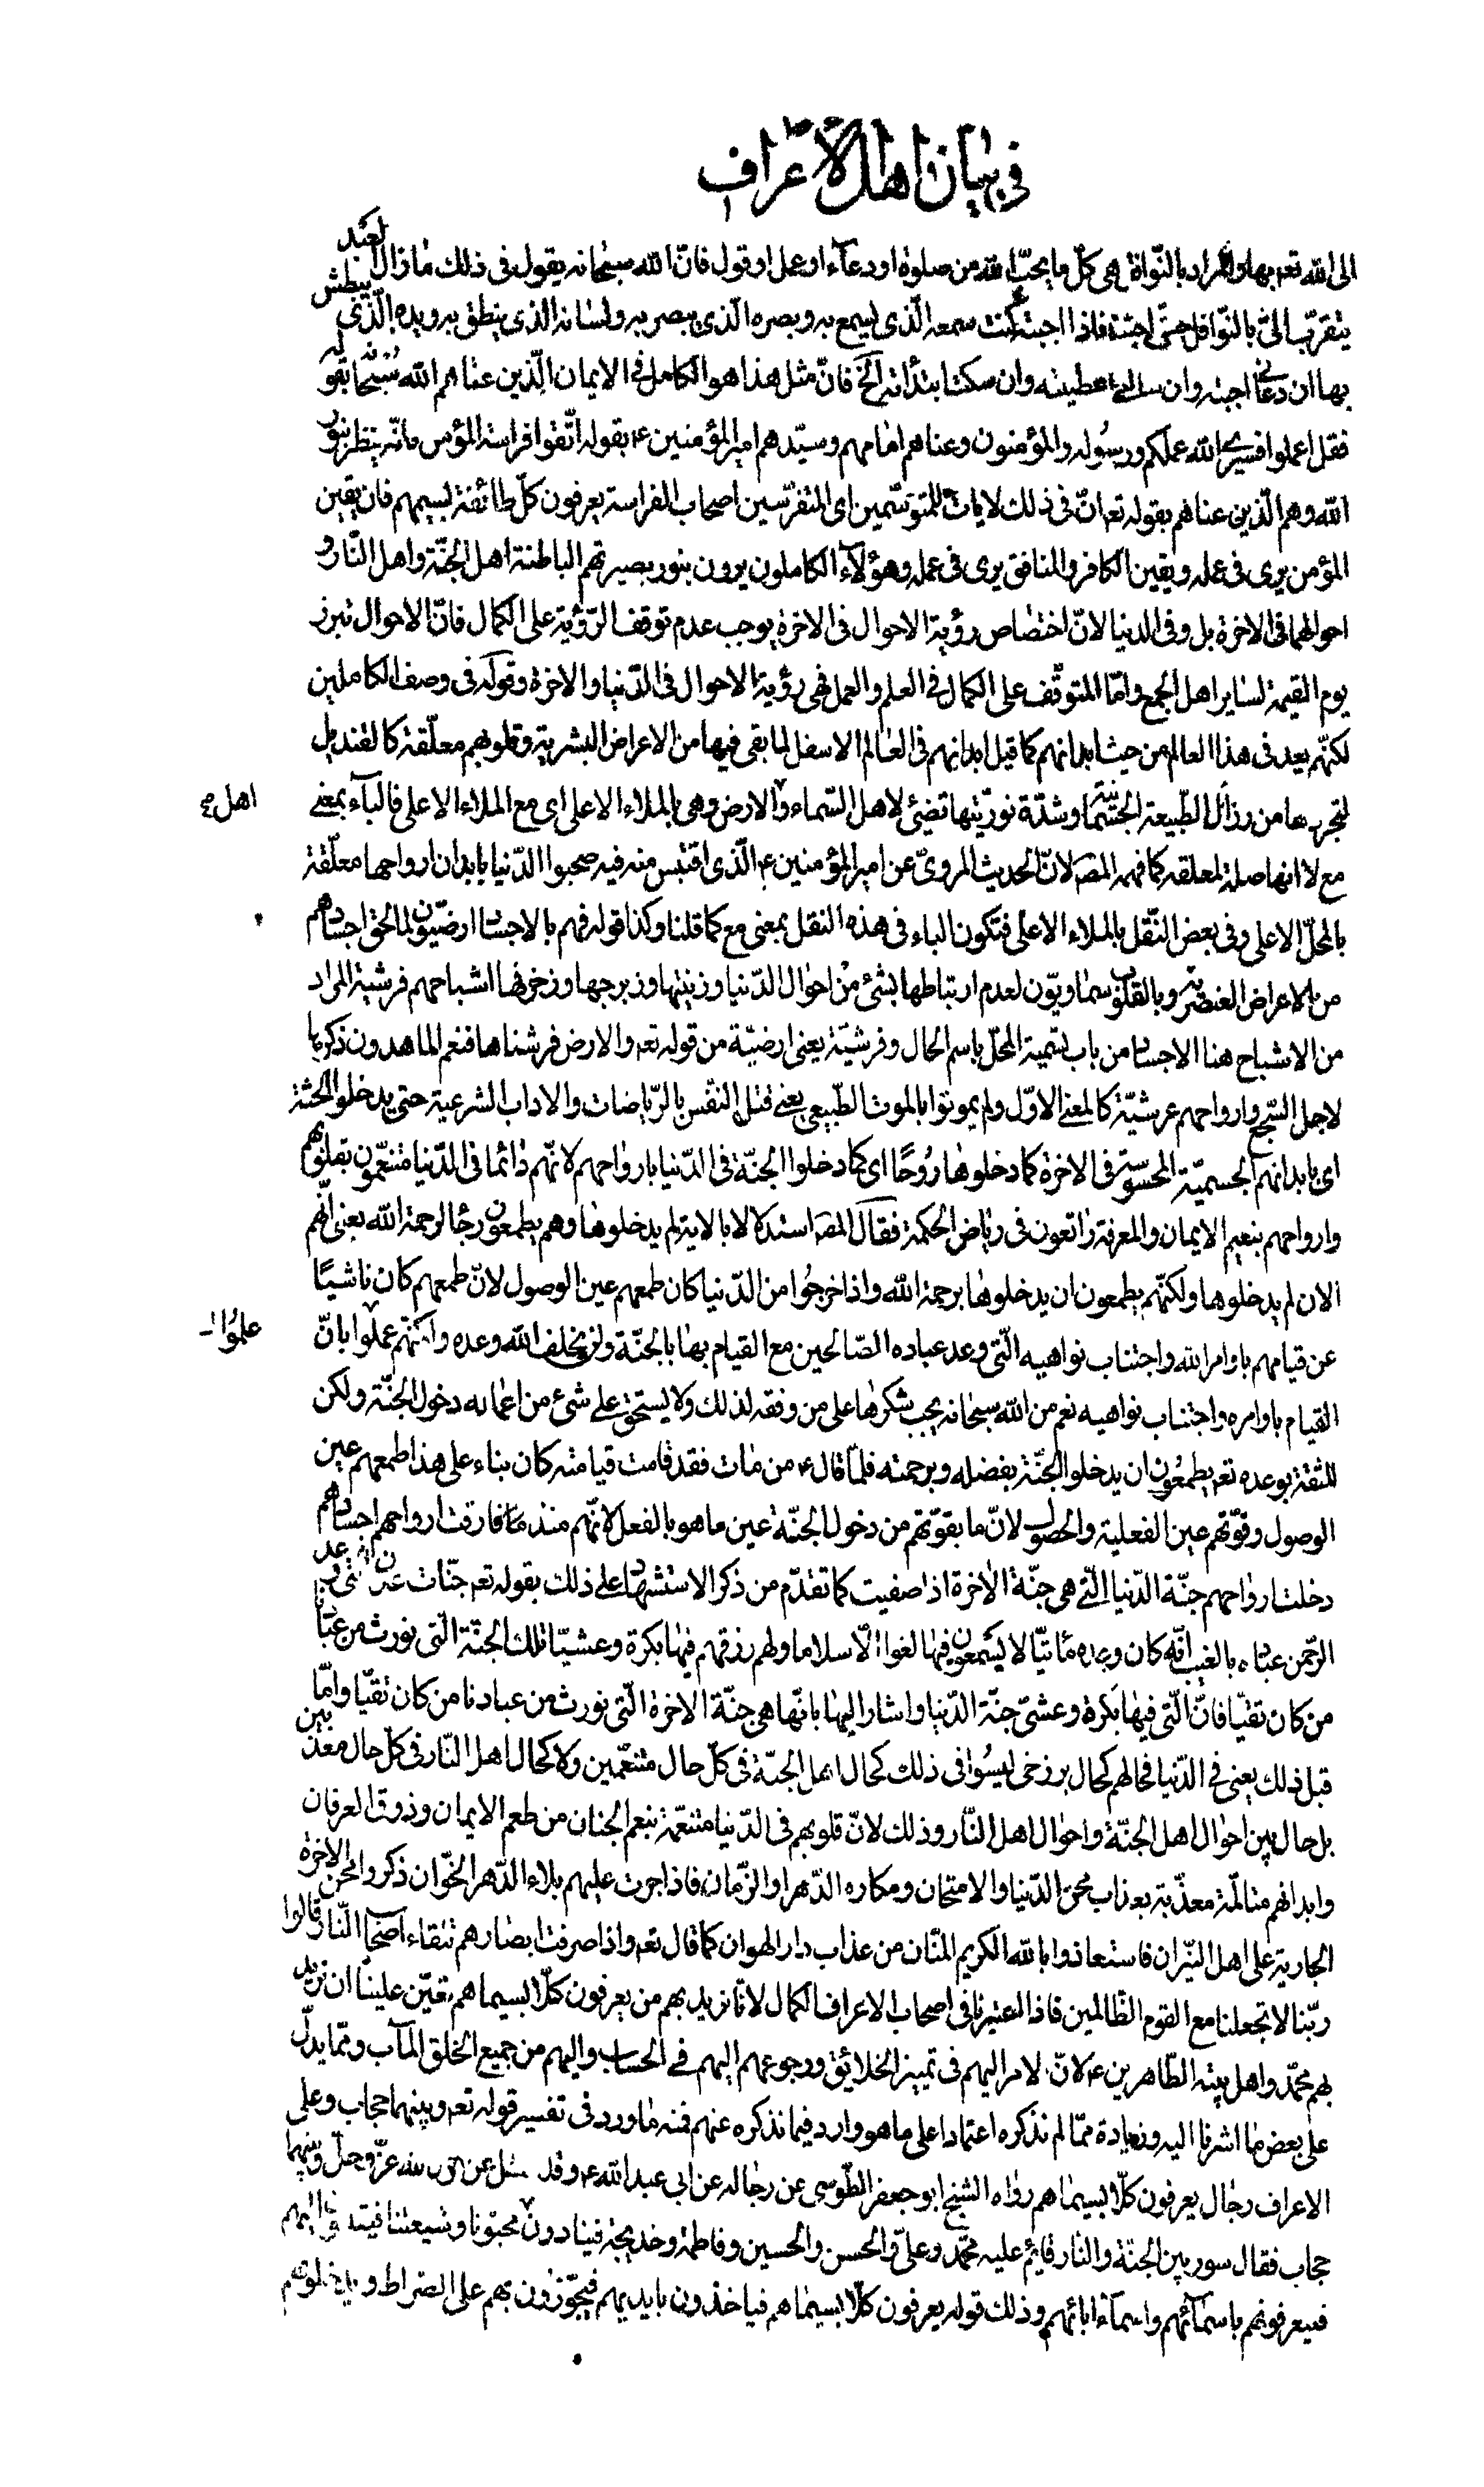 في بيان اهل الأعراف
الى الله تعه بها والمراد بالنّوافل هي كلّ ما يحبّ الله من صلوة او دعآء او عمل او قول فانّ الله سبحانه يقول في ذلك ما زال العبد
يتقرّب الىّ بالنّوافل حتّى احبّه فاذا احببته كنت سمعه الّذي يسمع به وبصره الّذي يبصر به ولسانه الذي ينطق به ويده الّذي يبطش
بها ان دعاني اجبته وان سالني اعطيته وان سكت ابتدأته الخ فانّ مثل هذا هو الكامل في الايمان الّذين عناهم الله سبحانه بقوله
فقل اعملوا فسيرى الله عملكم ورسُوله والمؤمنون وعناهم امامهم وسيّدهم امير المؤمنين ع بقوله اتّقوا فراسة المؤمن فانّه ينظر بنور
الله وهم الّذين عناهم بقوله تعه انّ في ذلك لايات للمتوسّمين اى المتفرّسين اصحاب الفراسة يعرفون كلّ طائفة بسيمهم فان يقين
المؤمن يرى في عمله ويقين الكافر والمنافق يرى في عمله وهؤلآء الكاملون يرون بنور بصيرتهم الباطنة اهل الجنّة واهل النّار و
احوالهما في الاخرة بل وفي الدنيا لانّ اختصاص رؤية الاحوال في الاخرة يوجب عدم توقف الرّؤية على الكمال فانّ الاحوال تبرز
يوم القيمة لساير اهل الجمع وامّا المتوقّف على الكمال في العلم والعمل فهي رؤية الاحوال في الدّنيا والاخرة وقوله في وصف الكاملين
لكنّهم بعد في هذا العالم من حيث ابدانهم كما قيل ابدانهم في العالم الاسفل لما بقى فيها من الاعراض البشرية وقلوبهم معلّقة كالقنديل
لتجردها من رزائل الطّبيعة الجسمانيّة وشدّة نوريّتها تضيئ لاهل السّماء والارض وهى بالملاء الاعلى اى مع الملاء الاعلى فالبآء بمعنى
اهل صح
مع لا انها صلة لمعلقه كما فهمه المصَ لانّ الحديث المروىّ عن امير المؤمنين ع الّذي اقتبس منه فيه صحبوا الدّنيا بابدان ارواحها معلّقة
بالمحلّ الاعلى وفي بعض النّقل بالملاء الاعلى فتكون الباء في هذه النقل بمعنى مع كما قلنا وكذا قوله فهم بالاجساد ارضيّون لما لحق اجسادهم
من الاعراض العنصرية وبالقلوب سماويّون لعدم ارتباطها بشئ من احوال الدّنيا وزينتها وزبرجها وزخرفها اشباحهم فرشية المراد
من الاشباح هنا الاجساد من باب تسمية المحلّ باسم الحال وفرشيّة يعنى ارضيّة من قوله تعه والارض فرشناها فنعم الماهدون ذكرها
لاجل السّجع وارواحهم عرشيّة كالمعنى الاوّل ولم يموتوا بالموت الطّبيعى يعنى قتل النفّس بالرّياضات والاداب الشرعية حتى يدخلوا الجنّة
اى بابدانهم الجسميّة المحسوسة في الاخرة كما دخلوها رُوحًا اى كما دخلوا الجنّة في الدّنيا بارواحهم لانّهم دائما في الدّنيا متنعّمون بقلوبهم
وارواحهم بنعيم الايمان والمعرفة راتعون في رياض الحكمة فقال المصَ استدلالا بالاية لم يدخلوها وهم يطمعون رجآ لرحمة الله يعنى انّهم
الان لم يدخلوها ولكنّهم يطمعون ان يدخلوها برحمة الله واذا خرجُوا من الدّنيا كان طمعهم عين الوصول لانّ طمعهم كان ناشيًا
عن قيامهم باوامر الله واجتناب نواهيه الّتى وعد عباده الصّالحين مع القيام بها بالجنّة ولن يخلف الله وعده ولكنّهم عملوا بانّ
علمُوا
القيام باوامره واجتناب نواهيه نعم من الله سبحانه يجب شكرها على من وفقه لذلك ولا يستحق على شئ من اعماله دخول الجنّة ولكن
للثقة بوعده تعه يطمعُون ان يدخلوا الجنّة بفضله وبرحمته فلمّا قال ع من مات فقد قامت قيامته كان بناء على هذا طمعهم عين
الوصول وقوّتهم عين الفعلية والحصول لانّ ما بقوّتهم من دخول الجنّة عين ما هو بالفعل لانّهم منذ ما فارقت ارواحهم اجسادهم
دخلت ارواحهم جنّة الدّنيا الّتى هى جنّة الاخرة اذا صفيت كما تقدّم من ذكر الاستشهاد على ذلك بقوله تعه جنّات عدن التى وعد
الرّحمن عباده بالغيب انّه كان وعده مأتيّا لا يسمعون فيها لغوا الّا سلاما ولهم رزقهم فيها بكرة وعشيّا تلك الجنّة الّتى نورث من عبادنا
من كان تقيّا فانّ الّتى فيها بكرة وعشىّ جنّة الدّنيا واشار اليها بانّها هى جنّة الاخرة الّتى نورث من عبادنا من كان تقيّا وامّا
قبل ذلك يعنى في الدّنيا فحالهم كحال برزخى ليسُوا في ذلك كحال اهل الجنّة في كلّ حال متنعّمين ولا كحال اهل النّار في كلّ حال معذّبين
بل حال بين احوال اهل الجنّة واحوال اهل النّار وذلك لانّ قلوبهم في الدّنيا متنعّمة بنعم الجنان من طعم الايمان وذوق العرفان
وابدانهم متالّمة معذّبة بعذاب محن الدّنيا والامتحان ومكاره الدّهر والزّمان فاذا جرت عليهم بلاء الدّهر الخوّان ذكروا محن الاخرة
الجارية على اهل النّيران فاستعاذوا بالله الكريم المنّان من عذاب دار الهوان كما قال تعه واذا صرفت ابصارهم تلقاء اصحاب النّار قالوا
ربّنا لا تجعلنا مع القوم الظّالمين فاذا اعتبرنا في اصحاب الاعراف الكمال لانّا نريد بهم من يعرفون كلّا بسيماهم تعيّن علينا ان نريد
بهم محمّد واهل بيته الطّاهرين ع لانّ الامر اليهم في تمييز الخلائق ورجوعهم اليهم في الحساب واليهم من جميع الخلق المآب وممّا يدلّ
على بعض ما اشرنا اليه وزيادة ممّا لم نذكره اعتمادا على ما هو وارد فيما نذكره عنهم فمنه ما ورد في تفسير قوله تعه وبينهما حجاب وعلى
الاعراف رجال يعرفون كلّا بسيماهم رواه الشيخ ابو جعفر الطّوسى عن رجاله عن ابى عبد الله ع وقد سئل عن قول الله عزّ وجلّ وبينهما
حجاب فقال سور بين الجنّة والنّار قائم عليه محمّد وعلىّ والحسن والحسين وفاطمة وخديجة فينادون محبّونا وشيعتنا فيقبلون اليهم
فيعرفونهم باسمآئهم واسمآء ابائهم وذلك قوله يعرفون كلّا بسيماهم فياخذون بايديهم فيجوّزون بهم على الصراط ويدخلونهم